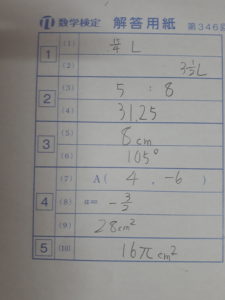 数学検定 解答用紙 第346回
1 (1) 15/4 L
(2) 3 1/2 L
2 (3) 5 : 8
(4) 31.25
3 (5) 8cm
(6) 105°
4 (7) A( 4 , -6 )
(8) a= -3/2
(9) 28cm²
5 (10) 16πcm²